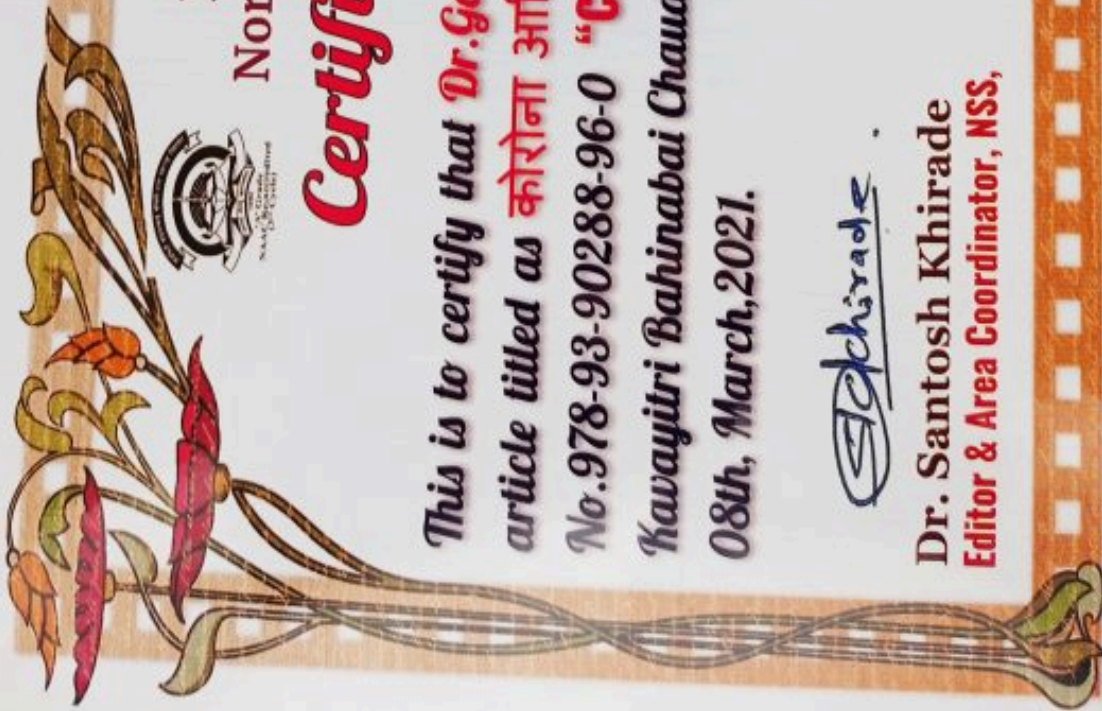 Nor
Certifi
This is to certify that Dr.Go
article titled as कोरोना आि
No.978-93-90288-96-0 "C
Kavayitri Bahinabai Chau
08th, March,2021.
Dr. Santosh Khirade
Editor & Area Coordinator, NSS,